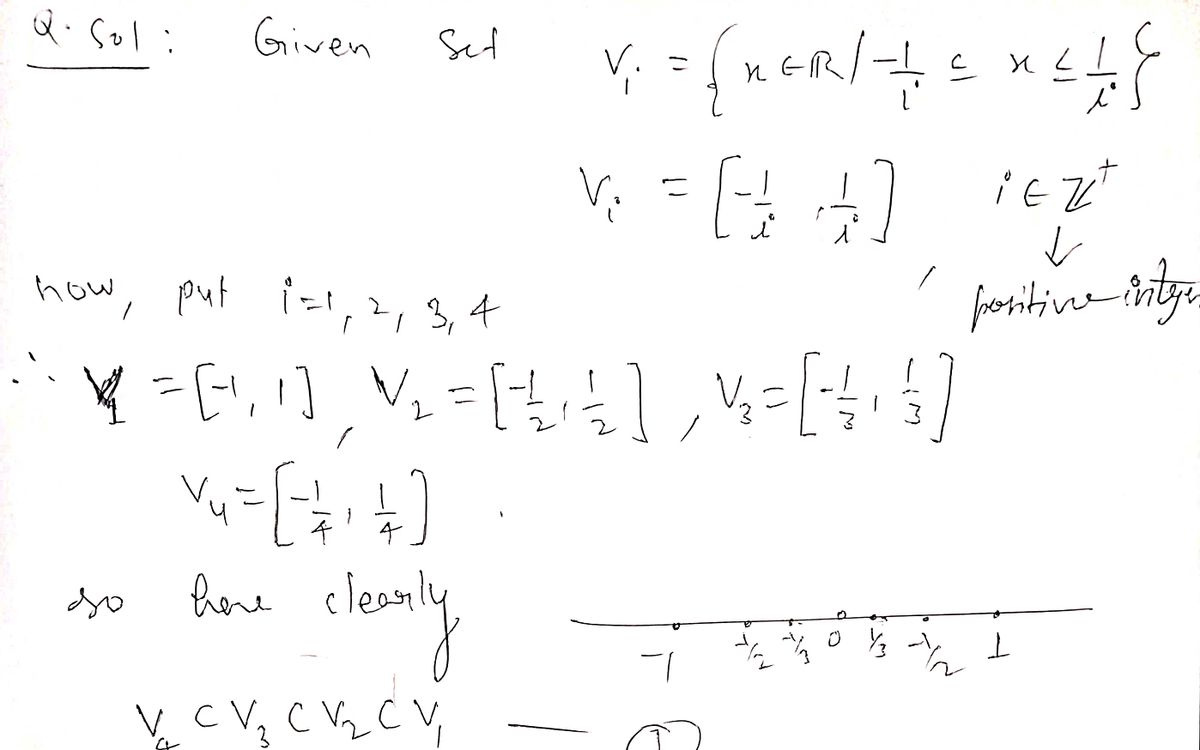 Q. Sol : Given Set V_i = { x ∈ ℝ / -1/i ≤ x ≤ 1/i }
V_i = [-1/i , 1/i] , i ∈ ℤ⁺
↓
positive integer
now, put i=1, 2, 3, 4
∴ V_1 = [-1, 1] , V_2 = [-1/2, 1/2] , V_3 = [-1/3, 1/3]
V_4 = [-1/4, 1/4] .
so here clearly
-1 -1/2 -1/3 0 1/3 -1/2 1
V_4 ⊂ V_3 ⊂ V_2 ⊂ V_1 — ①